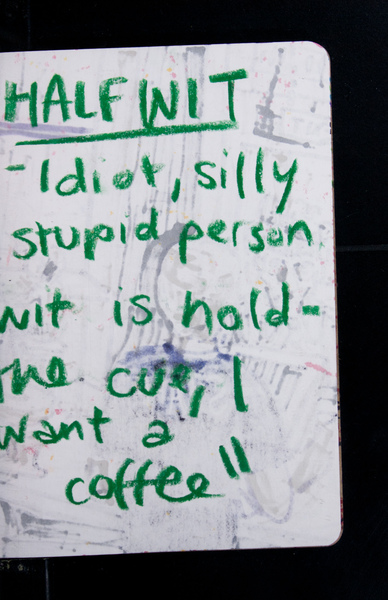 HALFWIT
- Idiot, silly
stupid person
wit is hold-
the cue, I
want a
coffee"